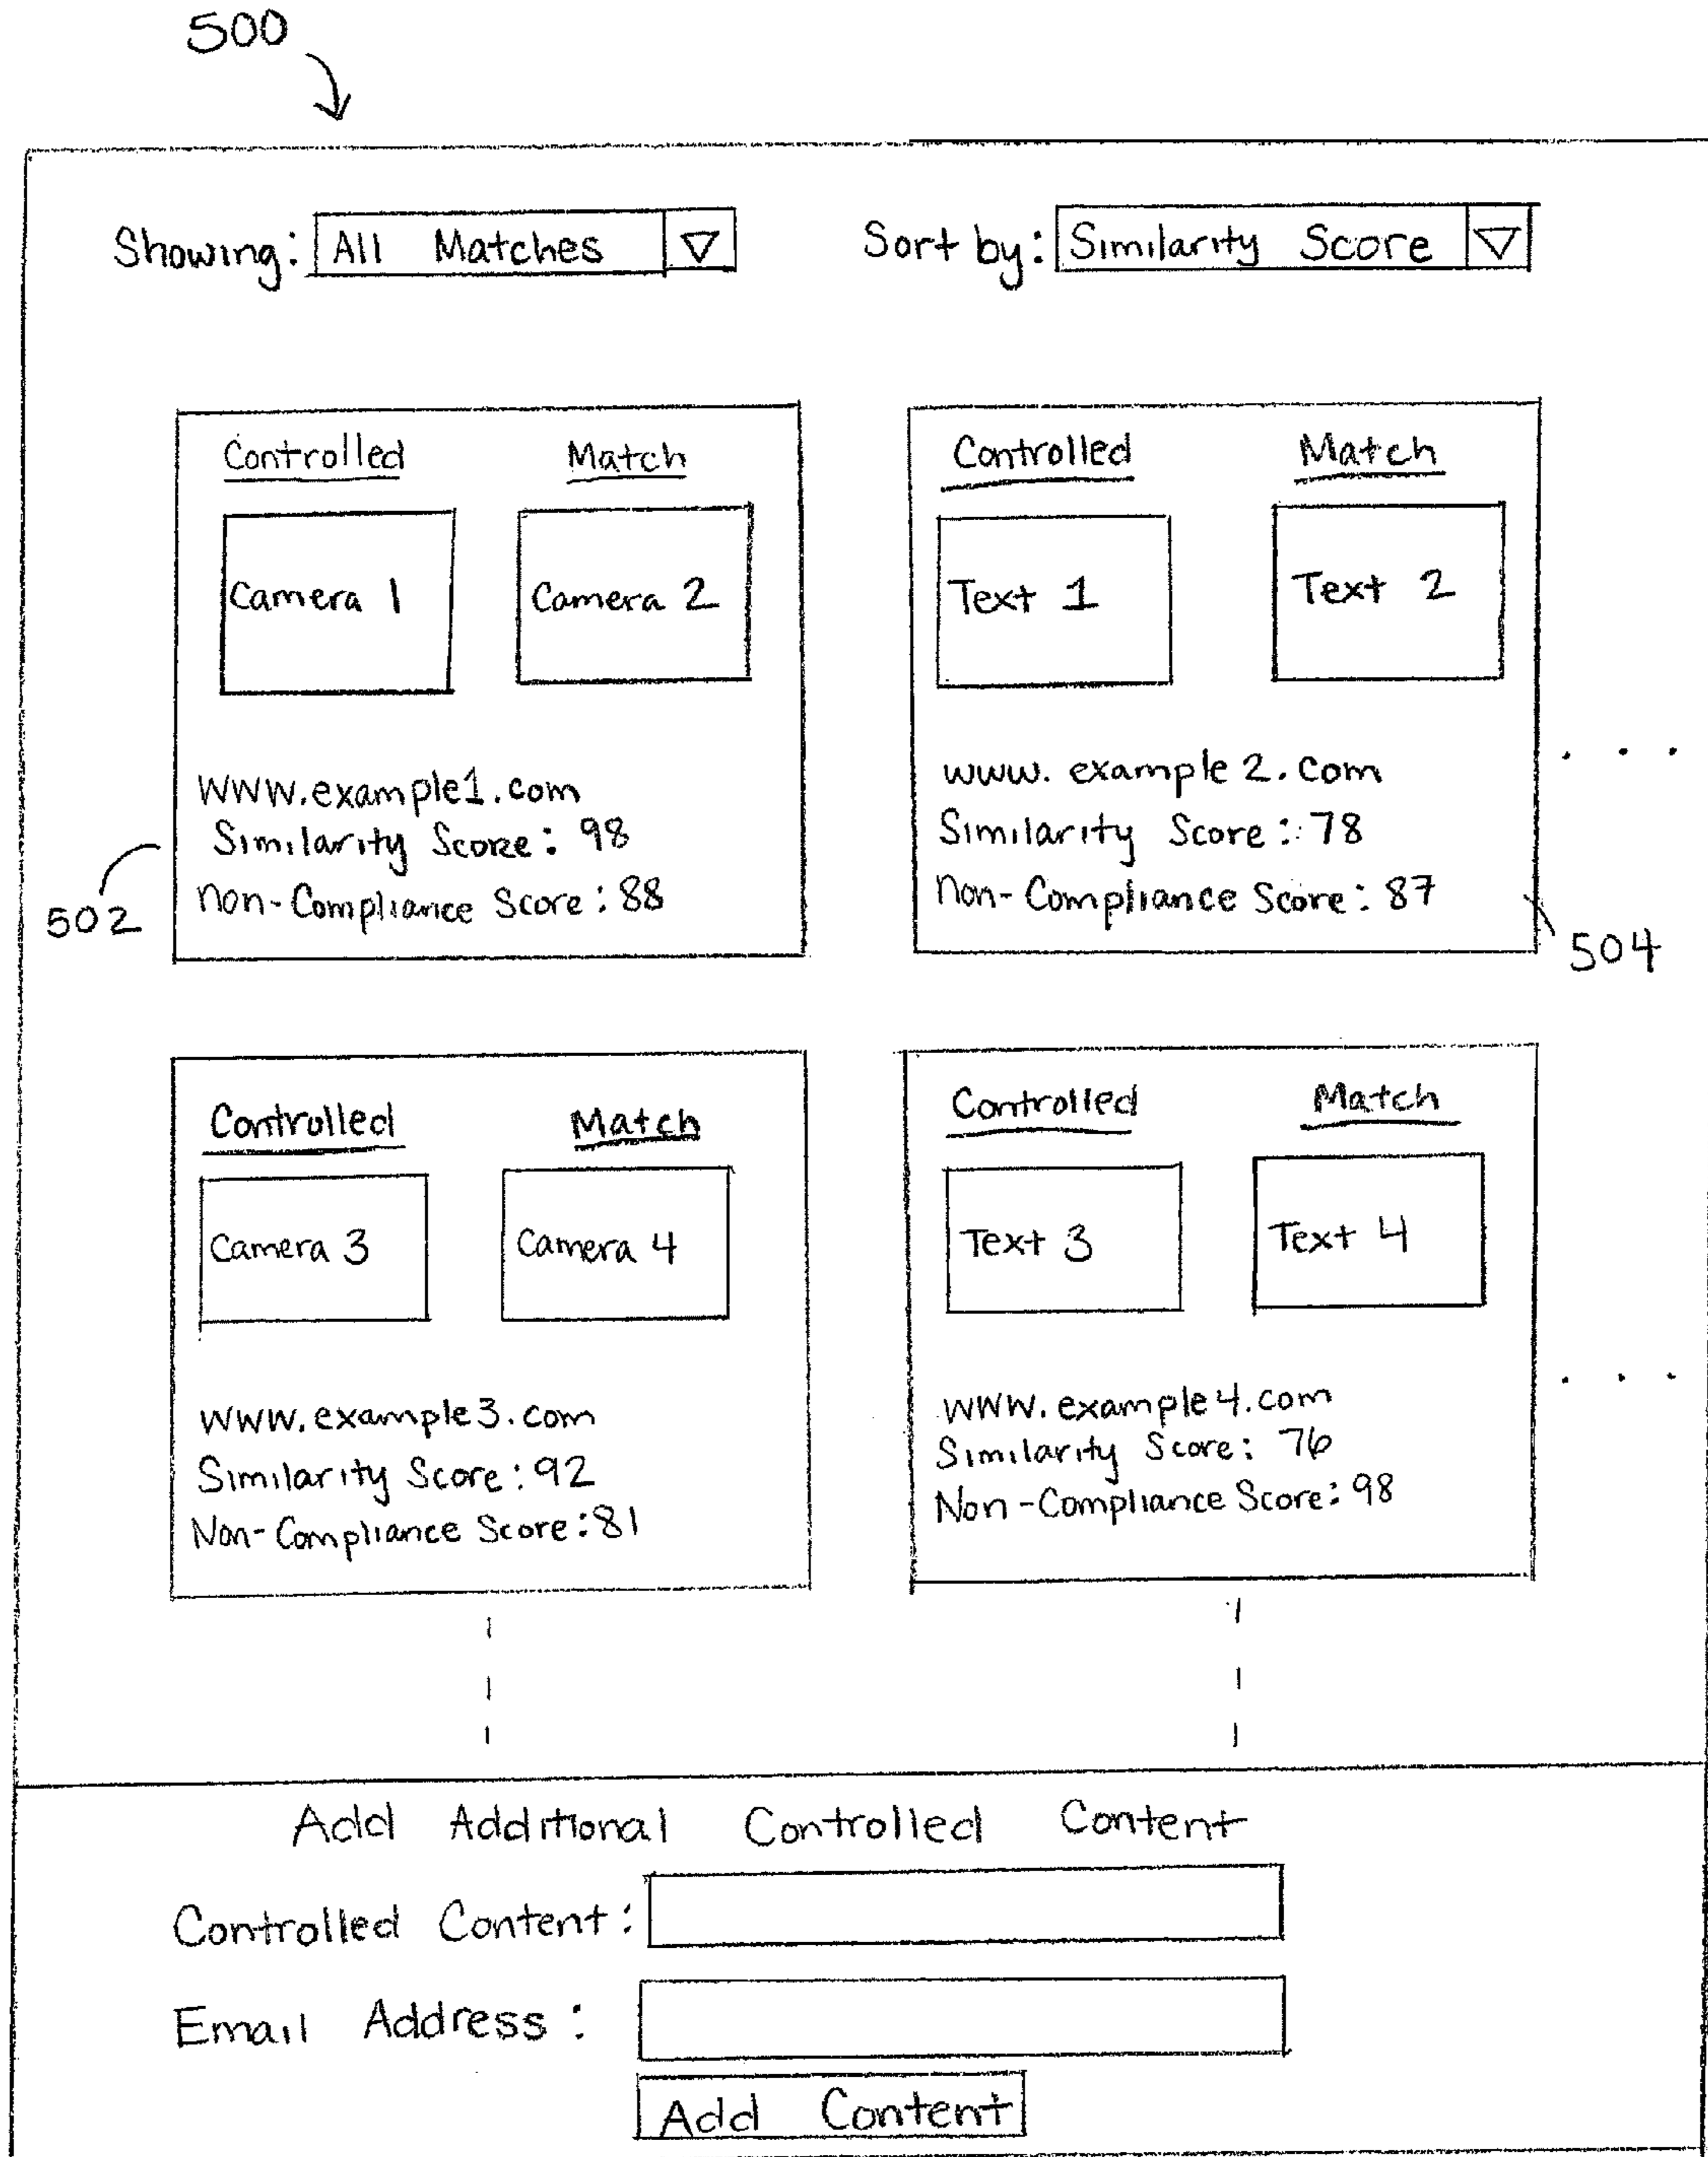 500
Showing: All Matches
Sort by: Similarity Score
Controlled Match
Camera 1 Camera 2
www.example1.com
Similarity Score: 98
non-Compliance Score: 88
502
Controlled Match
Text 1 Text 2
www.example2.com
Similarity Score: 78
non-Compliance Score: 87
504
. . .
Controlled Match
Camera 3 Camera 4
www.example3.com
Similarity Score: 92
Non-Compliance Score: 81
Controlled Match
Text 3 Text 4
www.example4.com
Similarity Score: 76
Non-Compliance Score: 98
. . .
Add Additional Controlled Content
Controlled Content:
Email Address:
Add Content